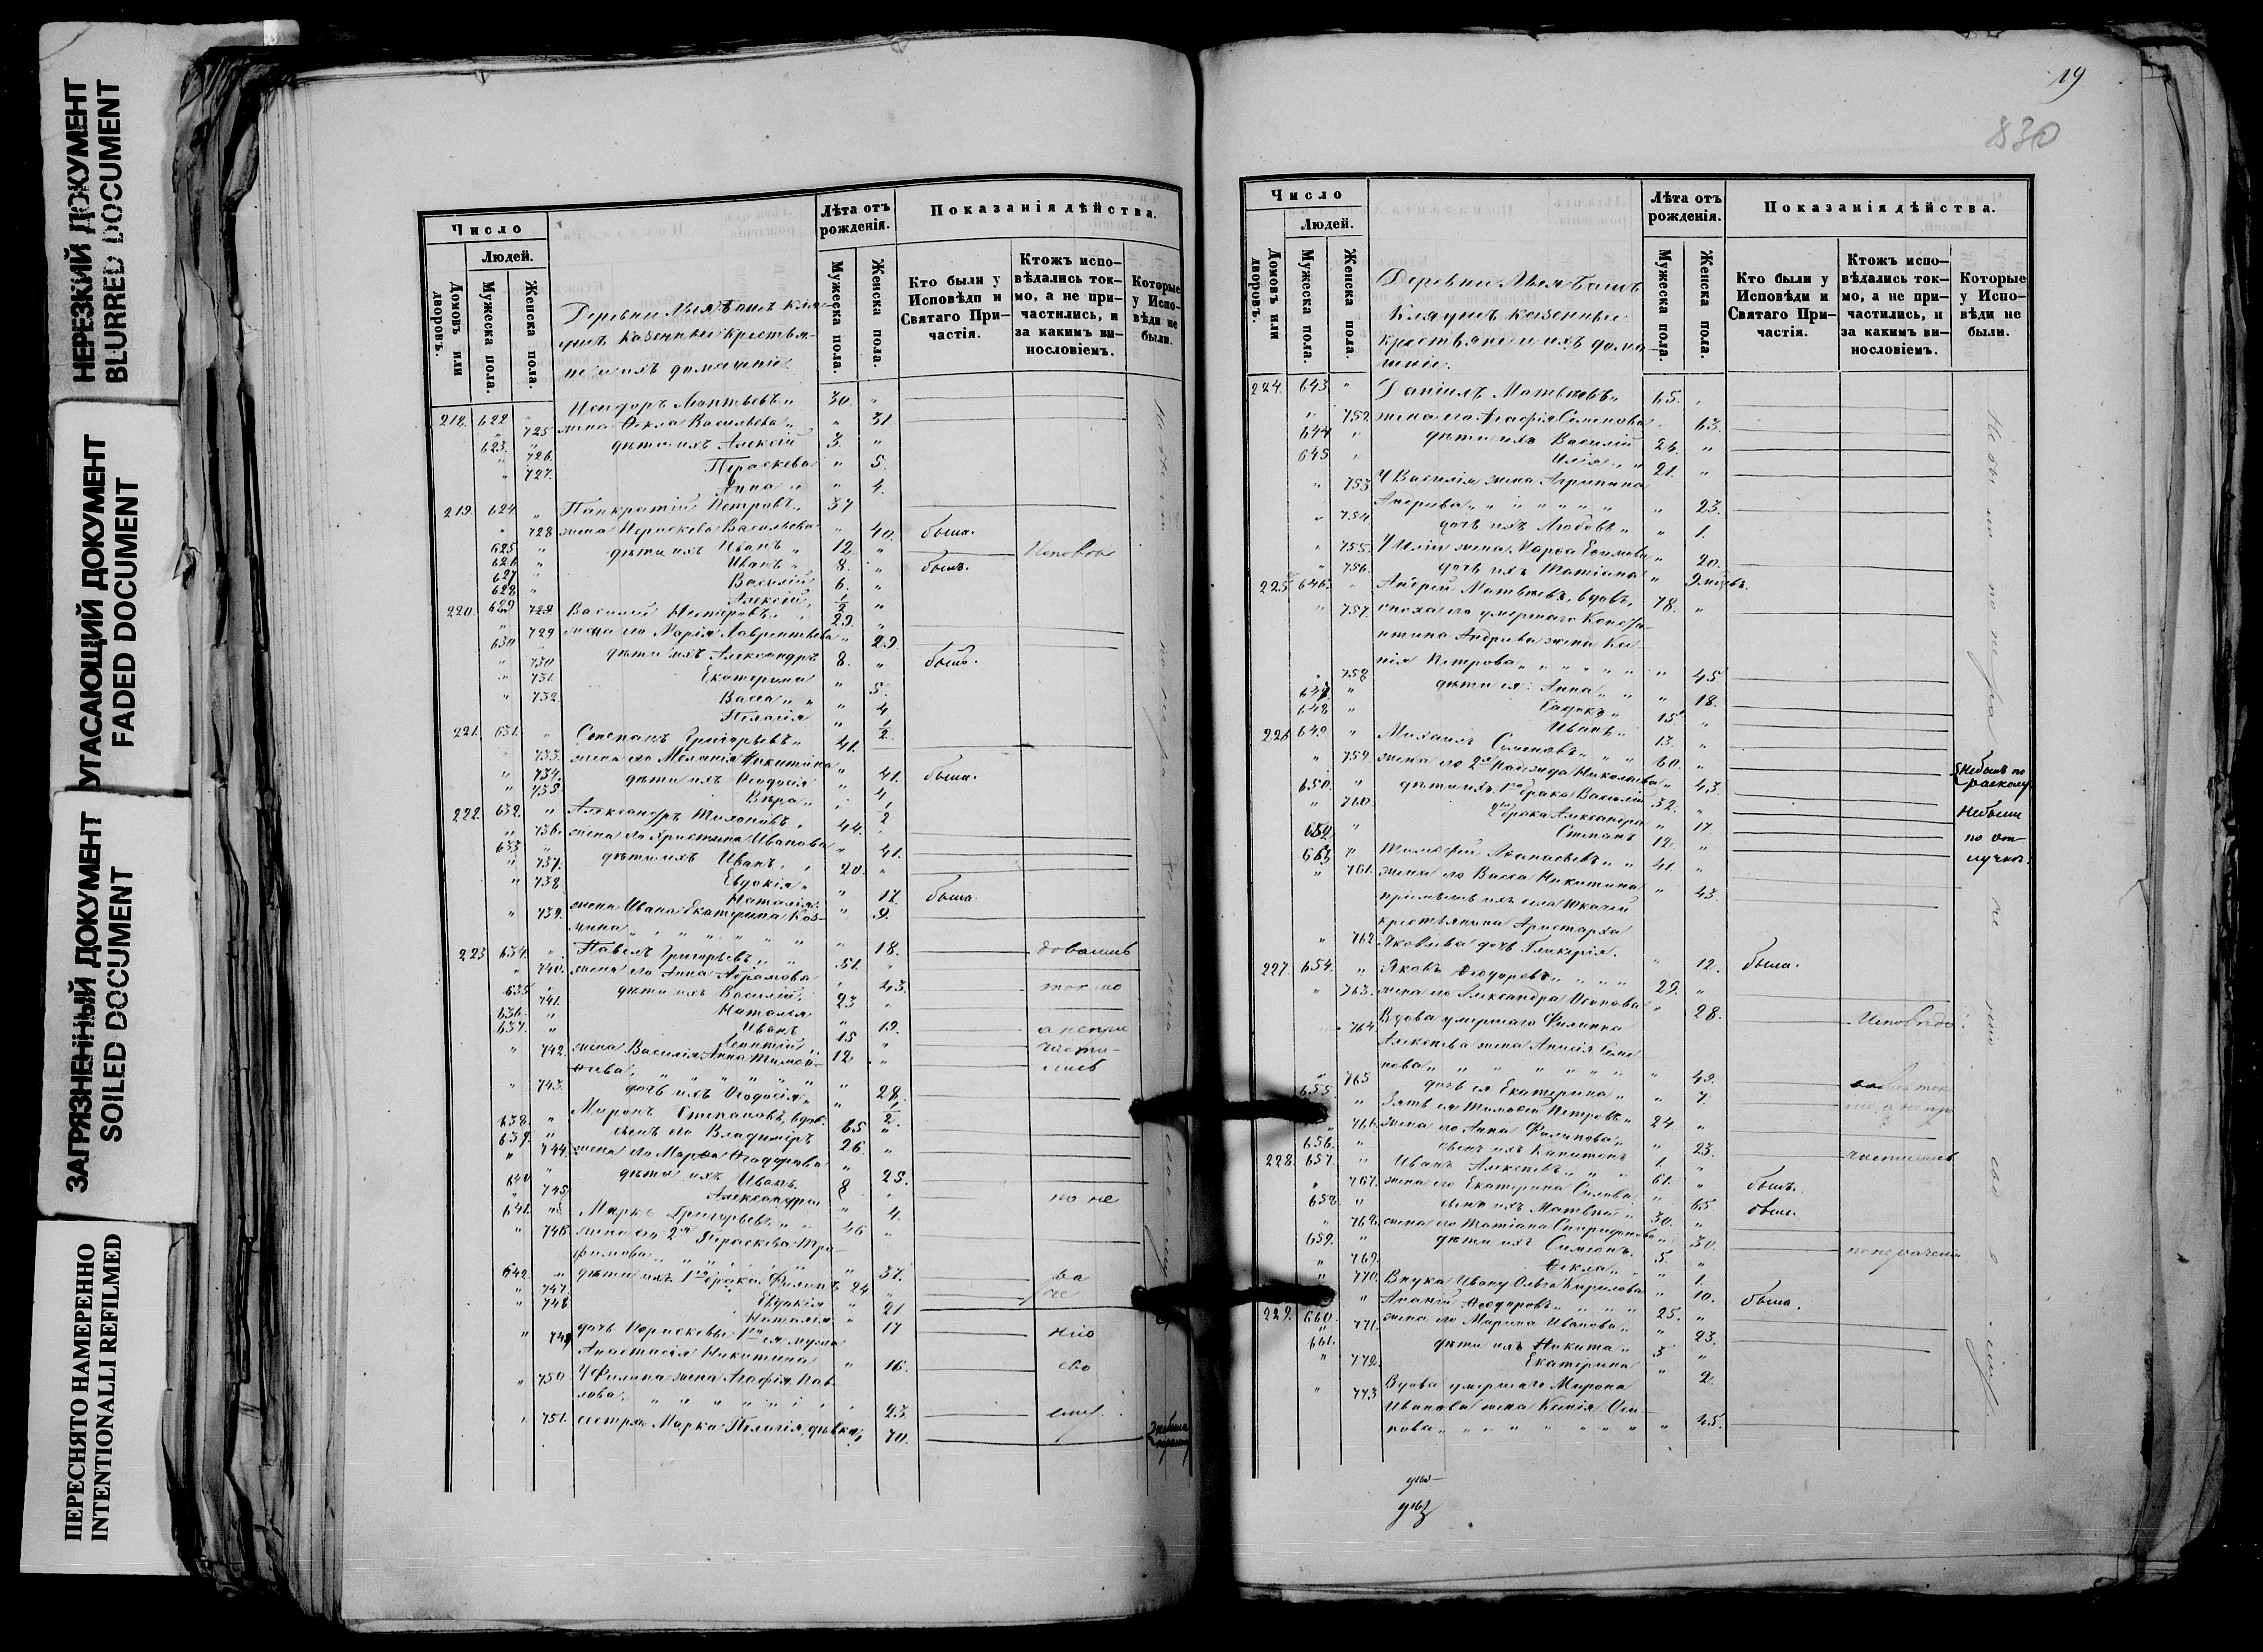 НЕРЕЗКИЙ ДОКУМЕНТ
BLURRED DOCUMENT
УГАСАЮЩИЙ ДОКУМЕНТ
FADED DOCUMENT
ЗАГРЯЗНЕННЫЙ ДОКУМЕНТ
SOILED DOCUMENT
ПЕРЕСНЯТО НАМЕРЕННО
INTENTIONALLI REFILMED
Число
Людей.
Домовъ или дворовъ.
Мужеска пола.
Женска пола.
Лѣта отъ рожденія.
Мужеска пола.
Женска пола.
Показанія дѣйства.
Кто были у Исповѣди и Святаго Причастія.
Ктожъ исповѣдались токмо, а не причастились, и за какимъ винословіемъ.
Которые у Исповѣди не были.
казенные крестья-
не и ихъ домашніе
218. 622 " Матвѣевъ " 30. "
" 725 жена Ѳекла Васильева " " 31
623. " дѣти ихъ Алексѣй 3. "
" 726. Параскева " 5.
" 727. Анна " " 4.
219. 624 " Панкратій Петровъ " 37
" 728 жена Параскева Васильева " 40. была.
625 " дѣти ихъ Иванъ " 12. "
626 " Иванъ " 8. " былъ.
627 " Василій 6. "
628 " Алексѣй 1/2 "
220. 629 Василій Нестеровъ " 29. "
" 729 жена его Марія Лаврентьева " 29.
630 " дѣти ихъ Александръ 8. " былъ.
" 730. Екатерина " 5.
" 731. Васса " " 4
" 732. Пелагія " 1/2.
221. 631. " Степанъ Григорьевъ " 41.
" 733. жена его Меланія Никитина " 41. была.
" 734. дѣти ихъ Ѳеодосія " 4
" 735. Вѣра " " 1/2
222. 632. " Александръ Тихоновъ " 44. "
" 736. жена его Христина Иванова " 41.
633 " дѣти ихъ Иванъ " 20. "
" 737. Евдокія " " 17. была
" 738 Наталія " 9.
" 739. жена Ивана Екатерина Коз-
мина " " 18.
223 634. " Павелъ Григорьевъ " 51. "
" 740. жена его Анна Абрамова " 43.
635 " дѣти ихъ Василій 23 "
741. Наталья " 19.
636. " Иванъ 15 "
637. " 12 "
" 742. жена Василія Анна Тимоѳ-
еева " " 28.
" 743. дочь ихъ Ѳеодосія " 1/2.
638. " Миронъ Степановъ, вдов. 65 "
639. " сынъ его Владиміръ 26. "
" 744. жена его Марѳа Ѳеодорова " 25.
640 " дѣти ихъ Иванъ 8 "
" 745. Александра " 4.
641. " Маркъ Григорьевъ " 46 "
" 746. жена его 2я Параскева Тро-
фимова " " 37.
642. " дѣти ихъ 1го брака Филипъ 24 "
" 747. Евдокія " 21
" 748 Наталія " 17
" 749 дочь Параскевы 1го ея мужа
Анастасія Никитина " 16.
" 750. У Филипа жена Агафія Пав-
лова " " 23.
" 751. сестра Марка Пелагія, дѣвка " 70.
19
830
Число
Людей.
Домовъ или дворовъ.
Мужеска пола.
Женска пола.
Лѣта отъ рожденія.
Мужеска пола.
Женска пола.
Показанія дѣйства.
Кто были у Исповѣди и Святаго Причастія.
Ктожъ исповѣдались токмо, а не причастились, и за какимъ винословіемъ.
Которые у Исповѣди не были.
казенные
крестьяне и ихъ дома-
шніе.
224. 643 " Даніилъ Матвѣевъ " 65. "
" 752 жена его Агафія Семенова " 63.
644 " дѣти ихъ Василій 26. "
645 " Илія " " 21. "
" 753 У Василія жена Агрипина
Андреева " " 23.
" 754 дочь ихъ Любовь " " 1.
" 755. У Иліи жена Марѳа Ефимова " 20.
" 756. дочь ихъ Татіана "
225 646. Андрей Матвѣевъ, вдовъ, 78. "
" 757. сноха его умершаго Конста-
нтина Андреева жена Ксе-
нія Петрова " " 45
" 758 дѣти ея: Анна " " 18.
647 " 15 "
648 " Иванъ " 13. "
226 649 " Михаилъ Семеновъ " 60. "
" 759. жена его 2я Надежда Николаева " 43. Небылъ по расколу
650. " дѣти ихъ 1го брака Василій 32. "
" 760. 2го брака Александра " 17 Небыли
652. " Степанъ 12. " по от-
653 " Тимоѳей Аѳанасьевъ " 41. " лучкѣ.
" 761. жена его Васса Никитина " 43.
крестьянина Аристарха
" 762 Яковлева дочь Гликерія. " 12. была.
227. 654. " Яковъ Ѳеодоровъ " 29. "
" 763. жена его Александра Осипова " 28.
" 764 Вдова умершаго Филиппа
Алексѣева жена Анисія Семе-
нова " " 49.
" 765 дочь ея Екатерина " " 7.
655. " Зять ея Тимоѳей Петровъ " 24 "
" 766. жена его Анна Филипова " " 23.
656. " сынъ ихъ Капитонъ 1. "
228. 657. " Иванъ Алексѣевъ " 61. " былъ.
" 767. жена его Екатерина Силова " 65. была.
658 " сынъ ихъ Матвѣй " 30. "
" 768. жена его Татіана Спиридонова " 30.
659. " дѣти ихъ Симеонъ. 5. "
" 769. Ѳекла " " 1.
" 770. Внука Ивану Ольга Кирилова " 10. была.
229. 660 " Ананій Ѳеодоровъ " 25. "
" 771. жена его Марина Иванова " 23.
661. " дѣти ихъ Никита " 3 "
" 772. Екатерина " 2.
" 773 Вдова умершаго Мирона
Иванова жена Ксенія Оси-
пова " " 45.